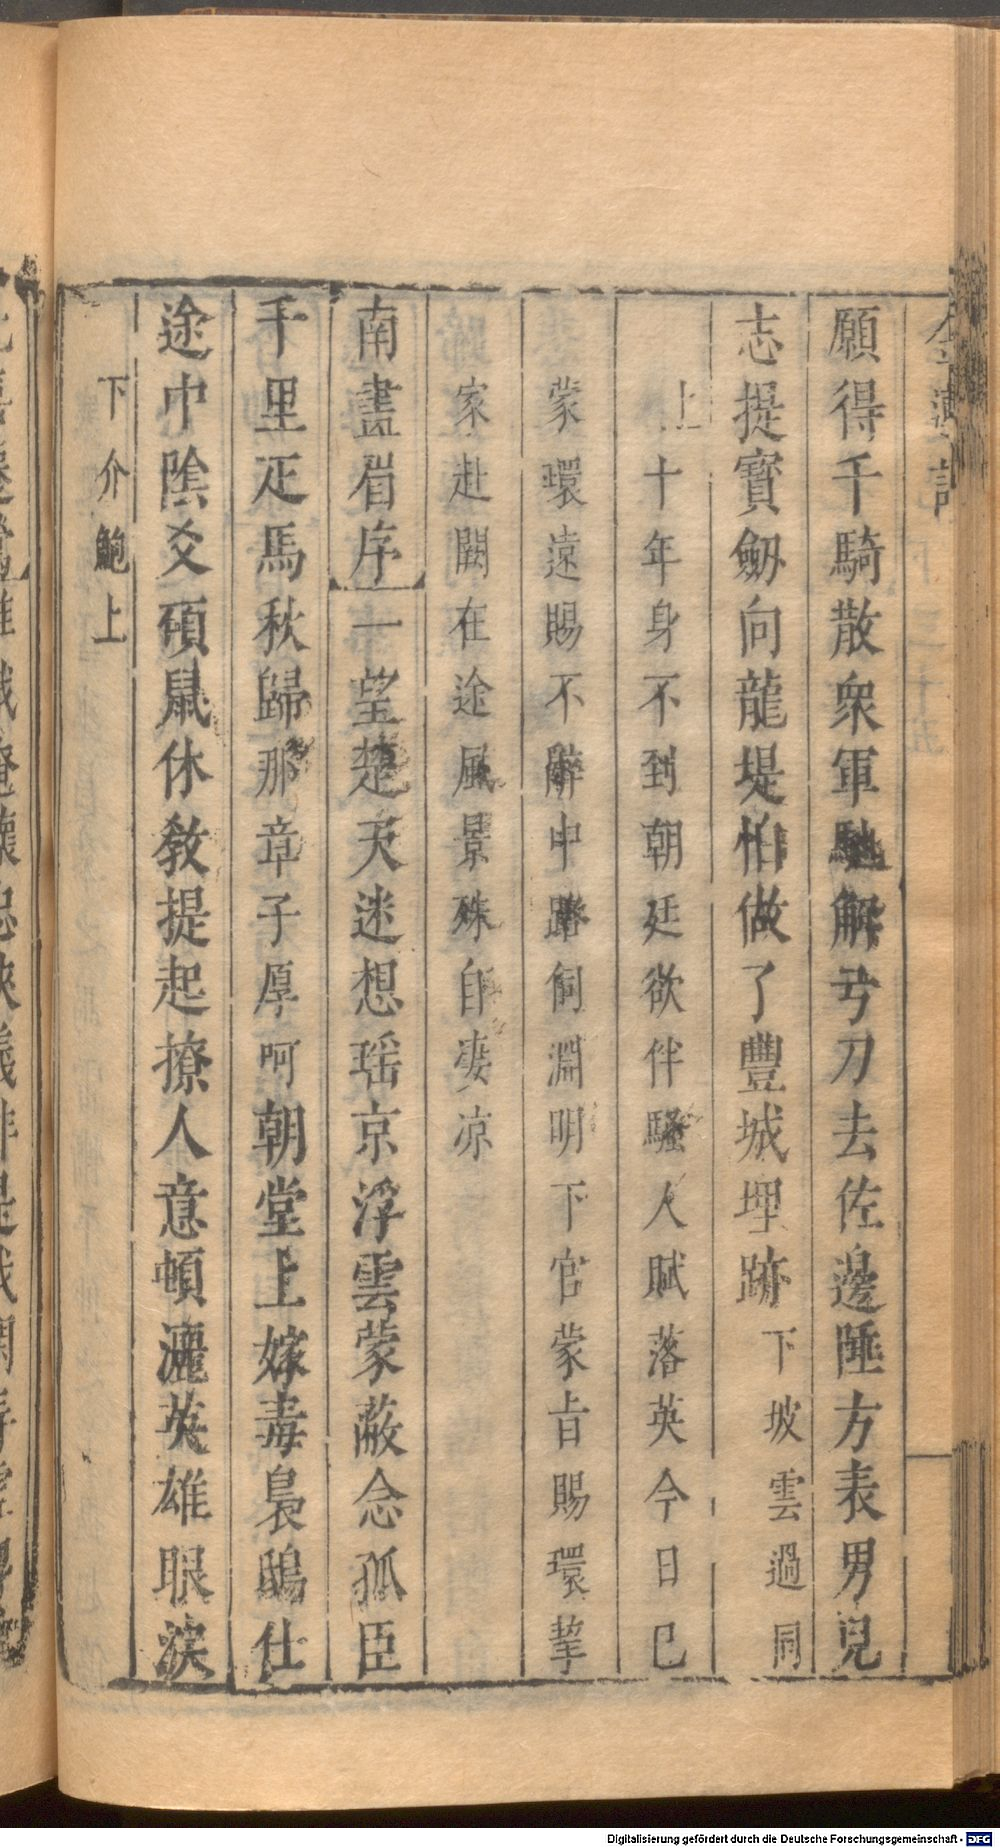 願得千騎散衆軍馳解弓刀去佐邊陲方表男兒
志提寳劔向龍堤怕做了豐城埋跡下坡雲過同
上十年身不到朝廷欲伴騷人賦落英今日巳
蒙環遠賜不辭中路飼淵明下官蒙旨賜環挈
家赴闕在途風景殊自凄凉
南畫眉序一望楚天迷想瑶京浮雲蒙蔽念孤臣
千里疋馬秋歸那章子厚呵朝堂上嫁毒梟鴟仕
途中陰爻碩鼠休敎提起撩人意頓灑英雄眼淚
下介鮑上
Digitalisierung gefördert durch die Deutsche Forschungsgemeinschaft - DFG